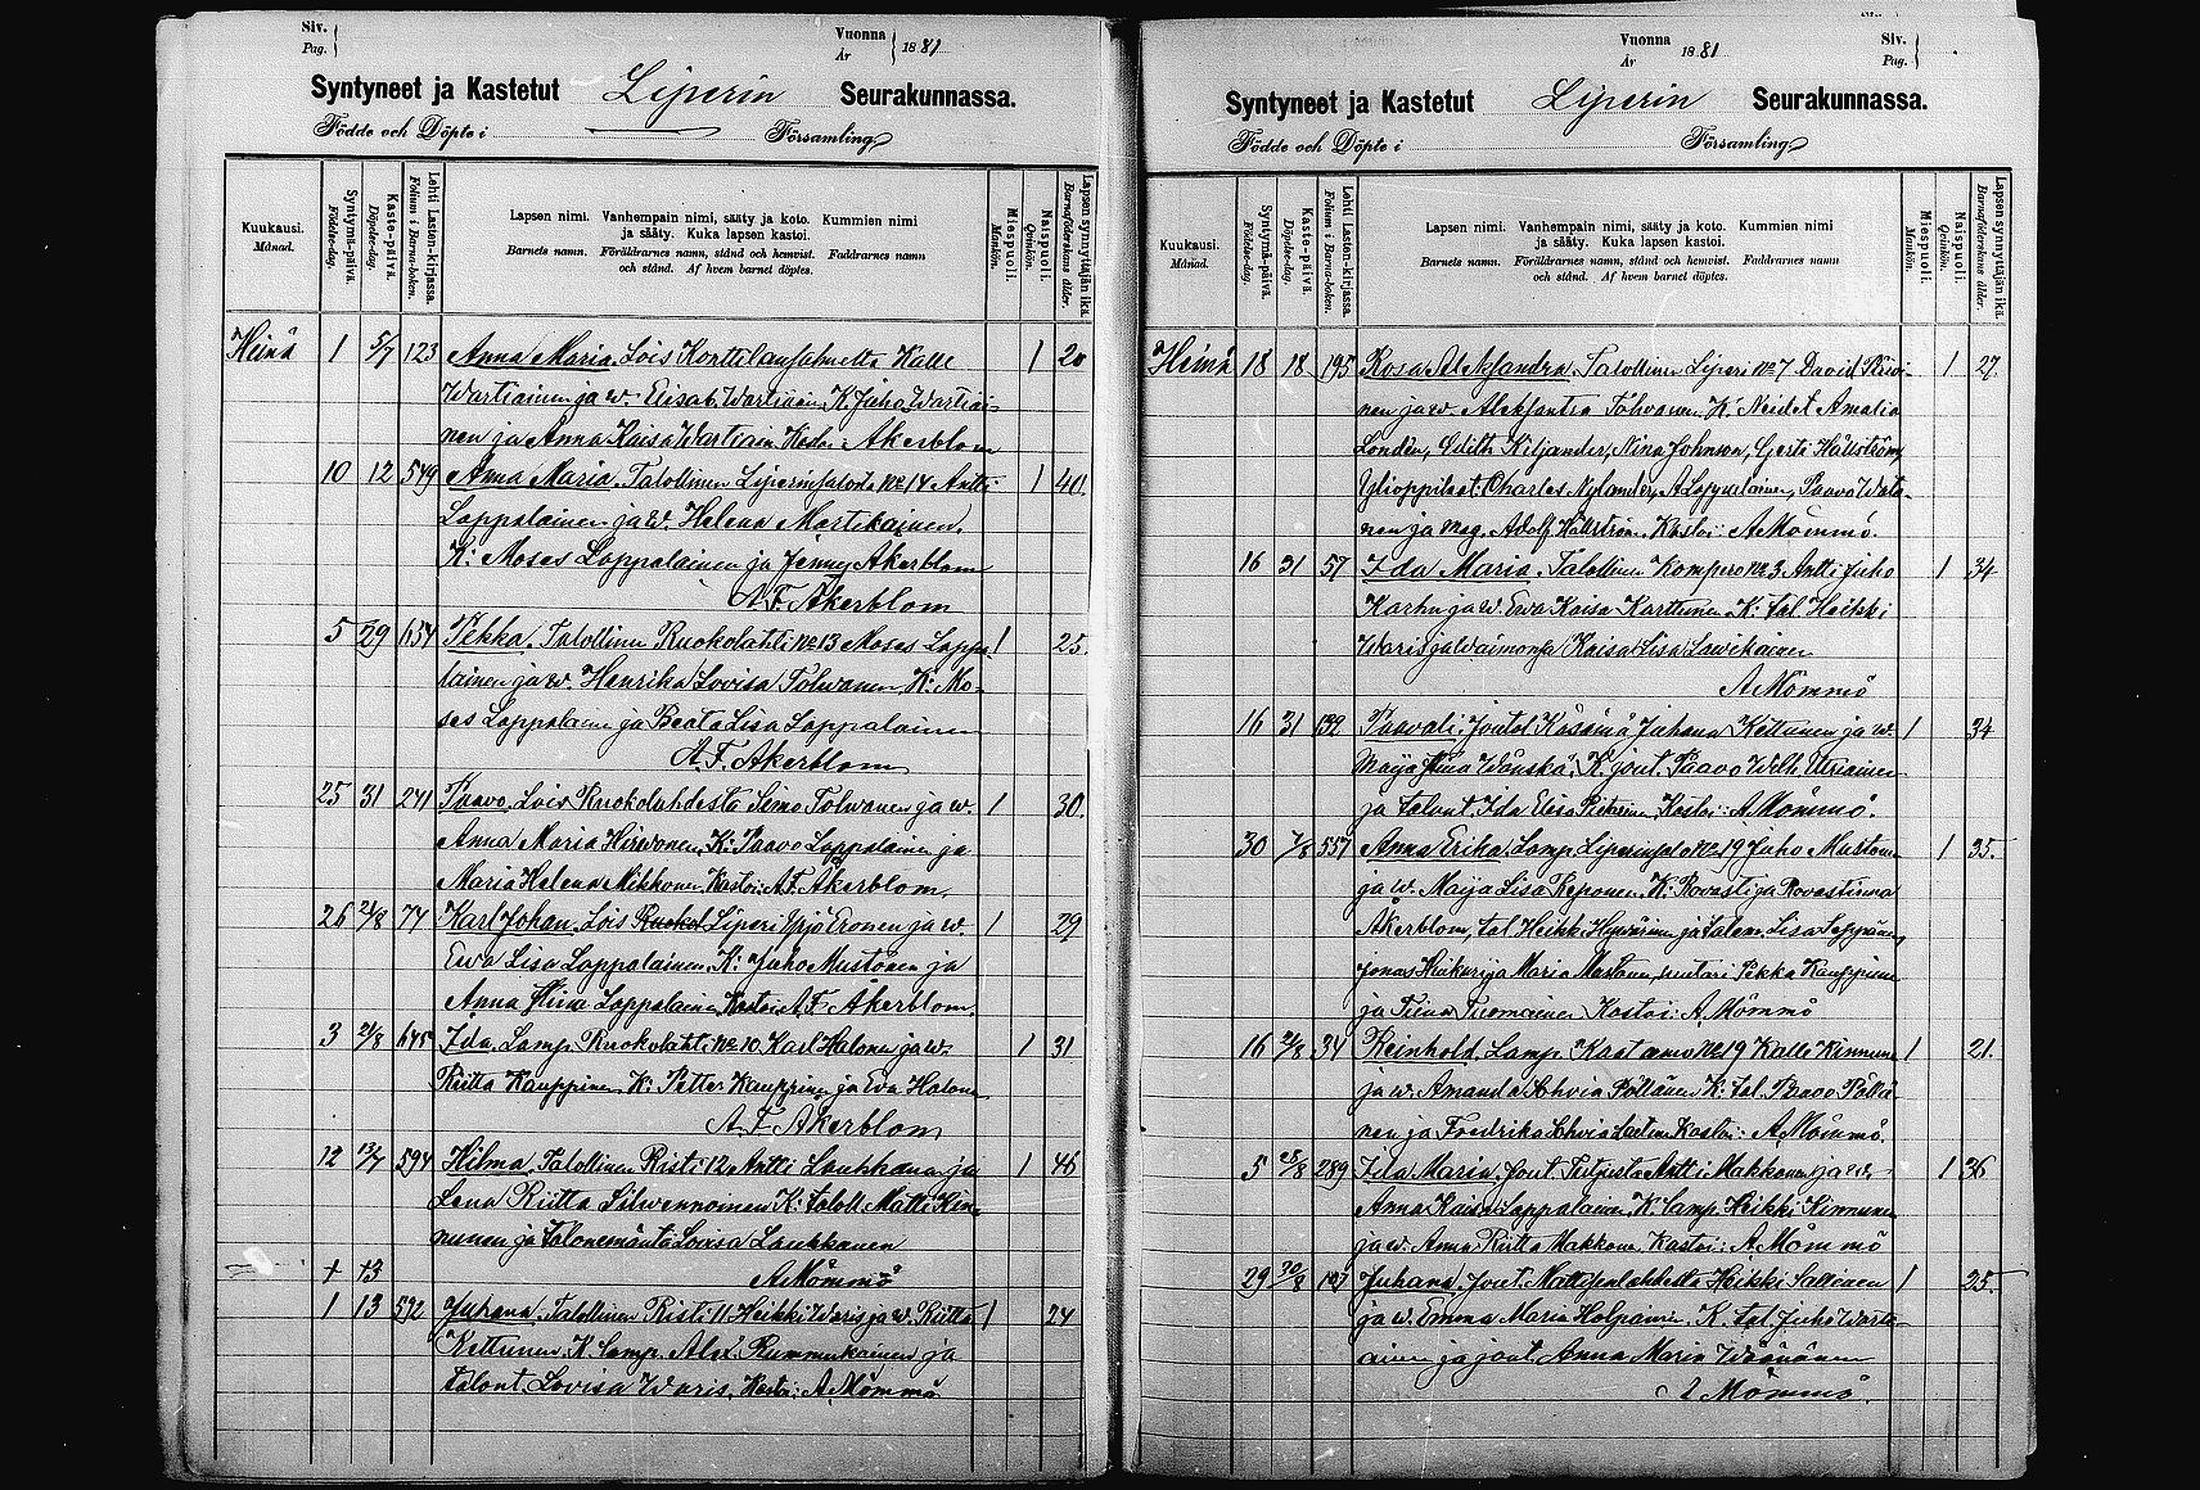 Siv.
Pag.
Vuonna
År
1881
Syntyneet ja Kastetut Liperin Seurakunnassa.
Födde och Döpte i Församling
Kuukausi.
Månad.
Syntymä-päivä.
Födelse-dag.
Kaste-päivä.
Döpelse-dag.
Lehti Lasten-kirjassa.
Folium i Barna-boken.
Lapsen nimi. Vanhempain nimi, sääty ja koto. Kummien nimi
ja sääty. Kuka lapsen kastoi.
Barnets namn. Föräldrarnes namn, stånd och hemvist. Faddrarnes namn
och stånd. Af hvem barnet döptes.
Miespuoli.
Mankön.
Naispuoli.
Qvinkön.
Lapsen synnyttäjän ikä.
Barnaföderskans ålder.
Heinä 1 5/7 123 Anna Maria, Lois Kalle 1 20
Wartiainen ja w. Elisab. Wartiain. K. Juho Wartiai-
nen ja Anna Kaisa Wartiain. Kastoi: Akerblom
10 12 549 Anna Maria, Talollinen Liperinsalosta No 14 Antti 1 40.
Loppalainen ja w. Helena Martikainen.
K: Moses Loppalainen ja Jenny Akerblom
A. F. Akerblom
5 29 654 Pekka, Talollinen Ruokolahti No 13 Moses Loppa- 1 25.
lainen ja w. Henrika Lovisa Tolwanen, K: Mo-
ses Loppalainen ja Beata Lisa Loppalainen
A. F. Akerblom
25 31 241 Paavo, Lois Ruokolahdesta Simo Tolwanen ja w. 1 30.
Anna Maria Hirwonen, K: Paavo Loppalainen ja
Maria Helena Mikkonen, Kastoi: A. F. Akerblom.
26 21/8 77 Karl Johan, Lois Ruokol Liperi Yrjö Eronen ja w. 1 29
Ewa Lisa Loppalainen, K: Juho Mustonen ja
Anna Stina Loppalainen, Kastoi A. F. Åkerblom.
3 21/8 645 Ida, Lamp. Ruokolahti No 10. Karl Halonen ja w. 1 31
Riitta Kauppinen, K: Petter Kauppinen ja Eva Halonen
A. F. Åkerblom
12 13/7 594 Hilma, Talollinen Risti 12 Antti Laukkanen ja 1 46
Lena Riitta Silwennoinen K: taloll. Matti Kin-
nunen ja talonemäntä Lovisa Laukkanen
† †3 A Mömmö
1 13 592 Juhana, Talollinen Risti 11 Heikki Waris ja w. Riitta 1 24
Kettunen. K. Lamp. Alex. Rummukainen ja
talont. Lovisa Waris, Kastoi: A Mömmö
Vuonna
År
1881
Siv.
Pag.
Syntyneet ja Kastetut Liperin Seurakunnassa.
Födde och Döpte i Församling
Kuukausi.
Månad.
Syntymä-päivä.
Födelse-dag.
Kaste-päivä.
Döpelse-dag.
Lehti Lasten-kirjassa.
Folium i Barna-boken.
Lapsen nimi. Vanhempain nimi, sääty ja koto. Kummien nimi
ja sääty. Kuka lapsen kastoi.
Barnets namn. Föräldrarnes namn, stånd och hemvist. Faddrarnes namn
och stånd. Af hvem barnet döptes.
Miespuoli.
Mankön.
Naispuoli.
Qvinkön.
Lapsen synnyttäjän ikä.
Barnaföderskans ålder
Heinä 18 18 195 Rosa Aleksandra, Talollinen Liperi No 7 David 1 27.
nen ja w. Aleksantra Tolwanen. K: Neidet Amalia
Londén, Edith Kiljander, Nina Johnson, Gerti Hällström,
Ylioppilaat: Charles Nylander, A Loppalainen, Paavo Wata-
nen ja mag. Adolf Hällström. Kastoi: A Mömmö.
16 31 57 Ida Maria, Talollinen Kompero No 3. Antti Juho 1 34
Karhu ja w. Ewa Kaisa Karttunen K: tal. Heikki
Waris ja Waimonsa Kaisa Lisa Lawikainen
A Mömmö
16 31 132 Paavali, Joutol. Käsämä Juhana Kettunen ja w. 1 34
Maija Stina Wänskä, K. jout. Paavo Wilh. Uriainen
ja talont. Ida Elisa Kastoi: A Mömmö.
30 7/8 557 Anna Erika, Lamp. Liperinsalo No 19 Juho Muston. 1 35.
ja w. Maija Lisa Reponen, K: Rovasti ja Rovastinna
Åkerblom, tal. Heikki Hywärinen ja talem. Lisa Leppänen,
Jonas ja Maria Mustonen, Pekka Kauppinen
ja Tiina Tuomainen Kastoi: A. Mömmö
16 21/8 34 Reinhold, Lamp. No 19 Kalle Kinnunen 1 21.
ja w. Amanda Pöllänen K: tal. Paavo Pöllä-
nen ja Fredrika Kastoi: A. Mömmö.
5 28/8 289 Ida Maria, Jout. Antti Makkonen ja w. 1 36
Anna Kaisa Loppalainen, K. Lamp. Heikki Kinnunen
ja w. Anna Riitta Makkonen Kastoi: A. Mömmö
29 30/8 Juhana, Jout. Mattisenlahdesta Heikki 1 25.
ja w. Emma Maria Holpainen. K. tal. Juho Warti-
ainen ja jout. Anna Maria Wäänänen
A Mömmö.